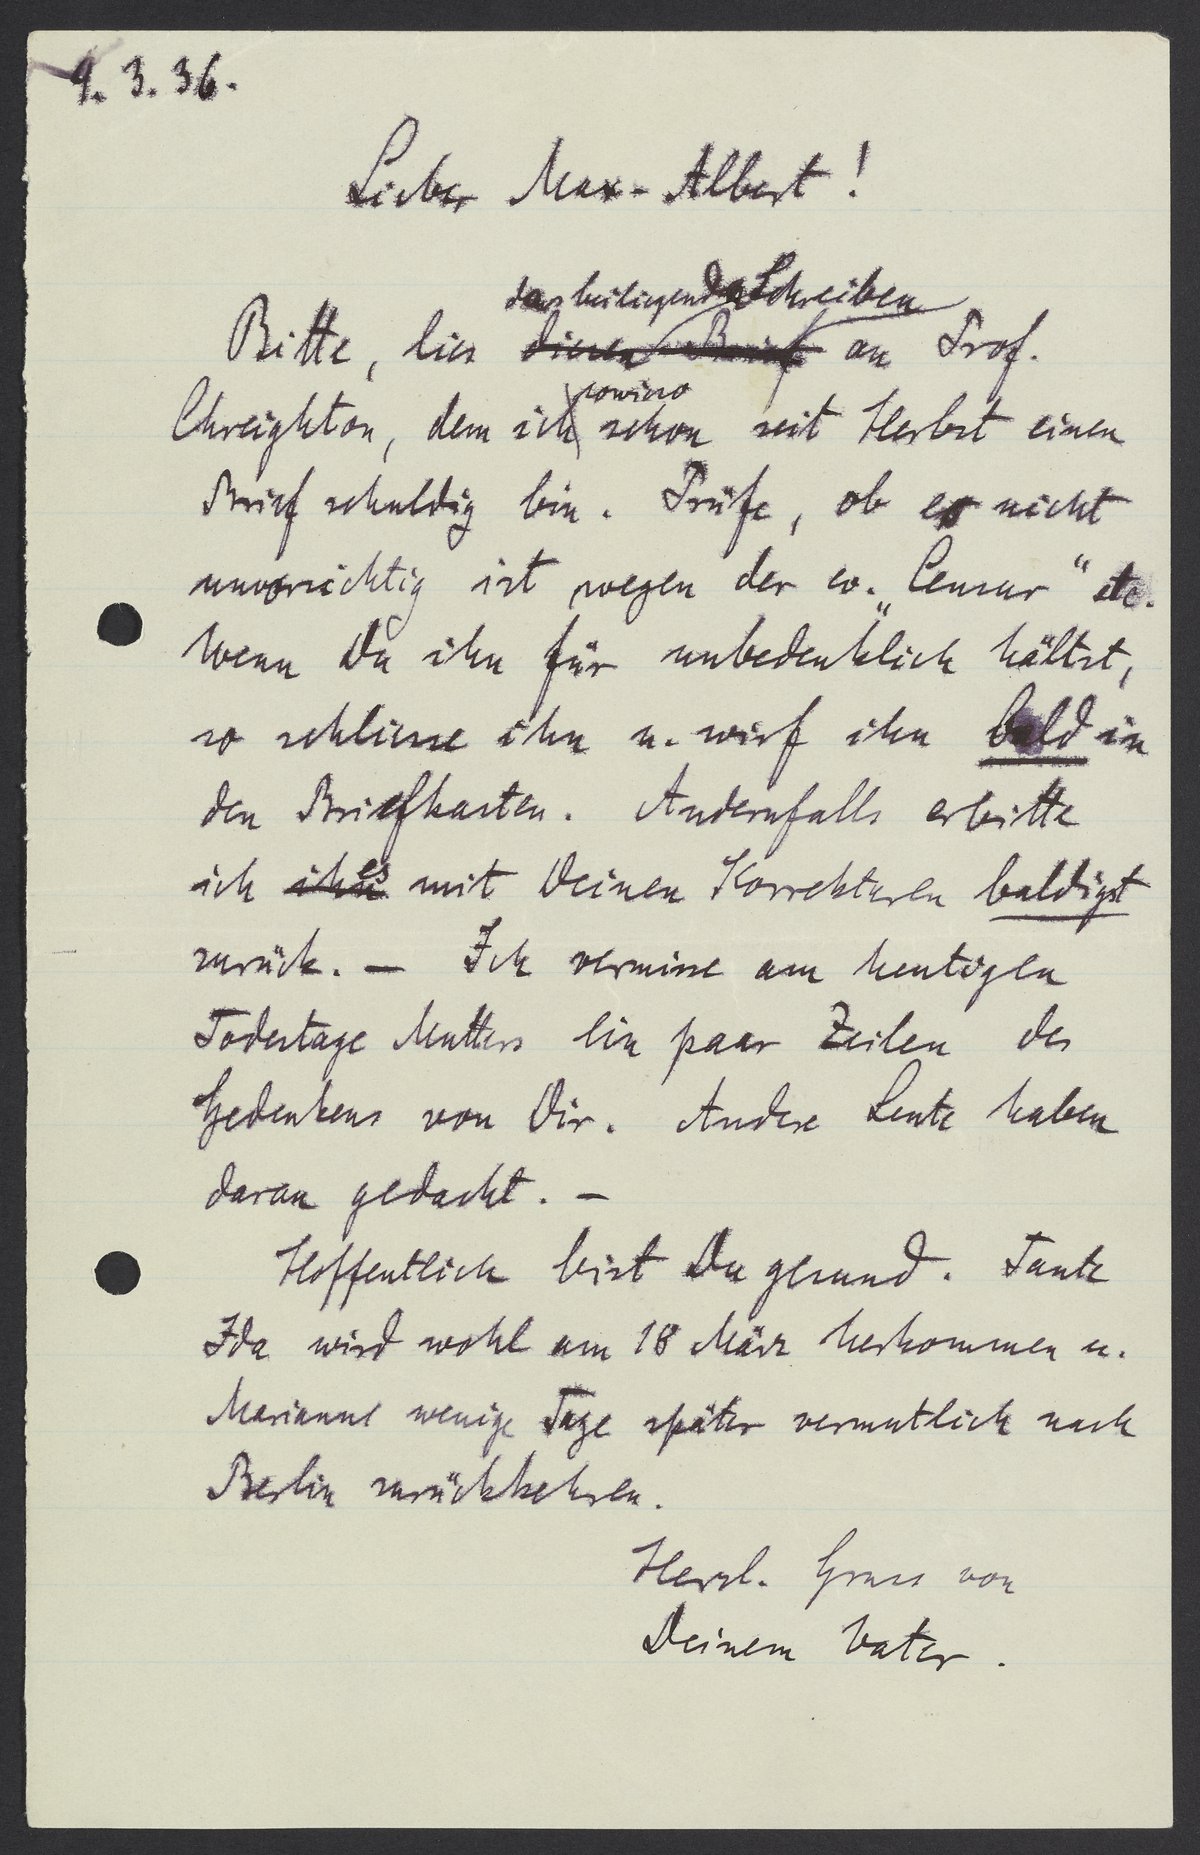 9. 3. 36.
Lieber Max-Albert!
das beiliegende Schreiben
Bitte, lies diesen Brief an Prof.
sowieso
Chreighton, dem ich schon seit Herbst einen
Brief schuldig bin. Prüfe, ob es nicht
unvorsichtig ist wegen der ev. „Censur“ etc.
Wenn Du ihn für unbedenklich hältst,
so schliesse ihn u. wirf ihn bald in
den Briefkasten. Andernfalls erbitte
es
ich ihn mit Deinen Korrekturen baldigst
zurück. — Ich vermisse am heutigen
Todestage Mutters ein paar Zeilen des
Gedenkens von Dir. Andere Leute haben
daran gedacht. —
Hoffentlich bist Du gesund. Tante
Ida wird wohl am 18 März herkommen u.
Marianne wenige Tage später vermutlich nach
Berlin zurückkehren.
Herzl. Gruss von
Deinem Vater.